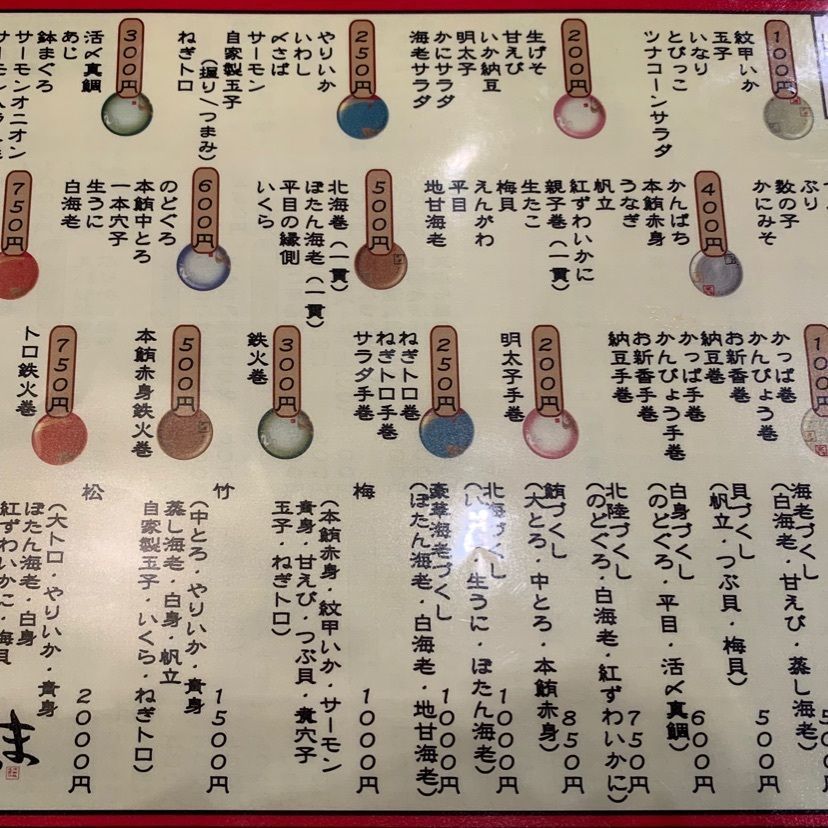 100円
紋甲いか
玉子
いなり
とびっこ
ツナコーンサラダ
200円
生げそ
甘えび
いか納豆
明太子
かにサラダ
海老サラダ
250円
やりいか
いわし
〆さば
サーモン
自家製玉子
(握り/つまみ)
ねぎトロ
300円
活〆真鯛
あじ
鉢まぐろ
サーモンオニオン
ぶり
数の子
かにみそ
400円
かんぱち
本鮪赤身
うなぎ
帆立
紅ずわいかに
親子巻(一貫)
生たこ
梅貝
えんがわ
平目
地甘海老
500円
北海巻(一貫)
ぼたん海老(一貫)
平目の縁側
いくら
600円
のどぐろ
本鮪中とろ
一本穴子
生うに
白海老
750円
かっぱ巻
かんぴょう巻
お新香巻
納豆巻
かっぱ手巻
かんぴょう手巻
お新香手巻
納豆手巻
200円
明太子手巻
250円
ねぎトロ巻
ねぎトロ手巻
サラダ手巻
300円
鉄火巻
500円
本鮪赤身鉄火巻
750円
トロ鉄火巻
海老づくし
(白海老・甘えび・蒸し海老)
貝づくし
(帆立・つぶ貝・梅貝)
500円
白身づくし
(のどぐろ・平目・活〆真鯛)
600円
北陸づくし
(のどぐろ・白海老・紅ずわいかに)
750円
鮪づくし
(大とろ・中とろ・本鮪赤身)
850円
北海づくし
・生うに・ぼたん海老)
1000円
豪華海老づくし
(ぼたん海老・白海老・地甘海老)
1000円
梅
(本鮪赤身・紋甲いか・サーモン
貴身・甘えび・つぶ貝・煮穴子
玉子・ねぎトロ)
1000円
竹
(中とろ・やりいか・貴身
蒸し海老・白身・帆立
自家製玉子・いくら・ねぎトロ)
1500円
松
(大トロ・やりいか・貴身
ぼたん海老・白身
紅ずわいかに・梅貝
2000円